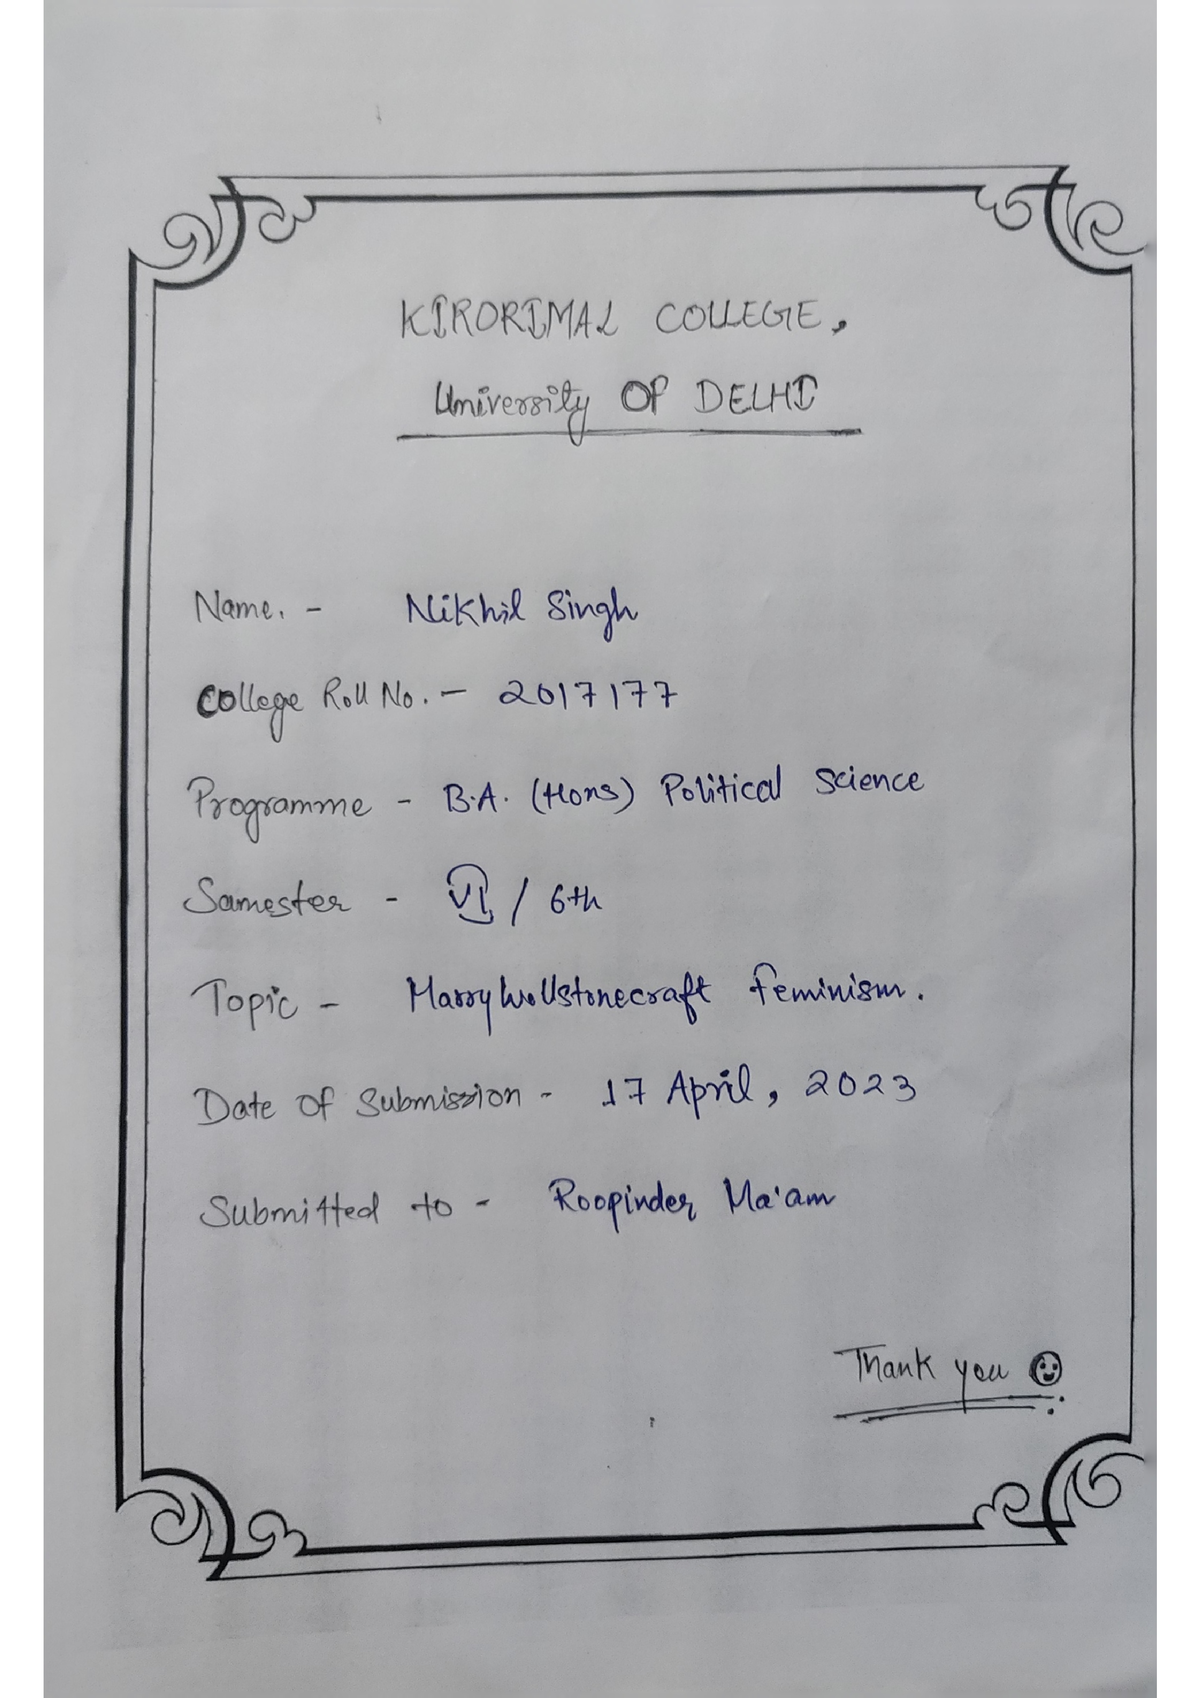 KIRORIMAL COLLEGE,
University OF DELHI
Name. - Nikhil Singh
College Roll No. - 2017177
Programme - B.A. (Hons) Political Science
Samester - VI / 6th
Topic - Marry Wollstonecraft Feminism.
Date Of Submission - 17 April, 2023
Submitted to - Roopinder Ma'am
Thank you